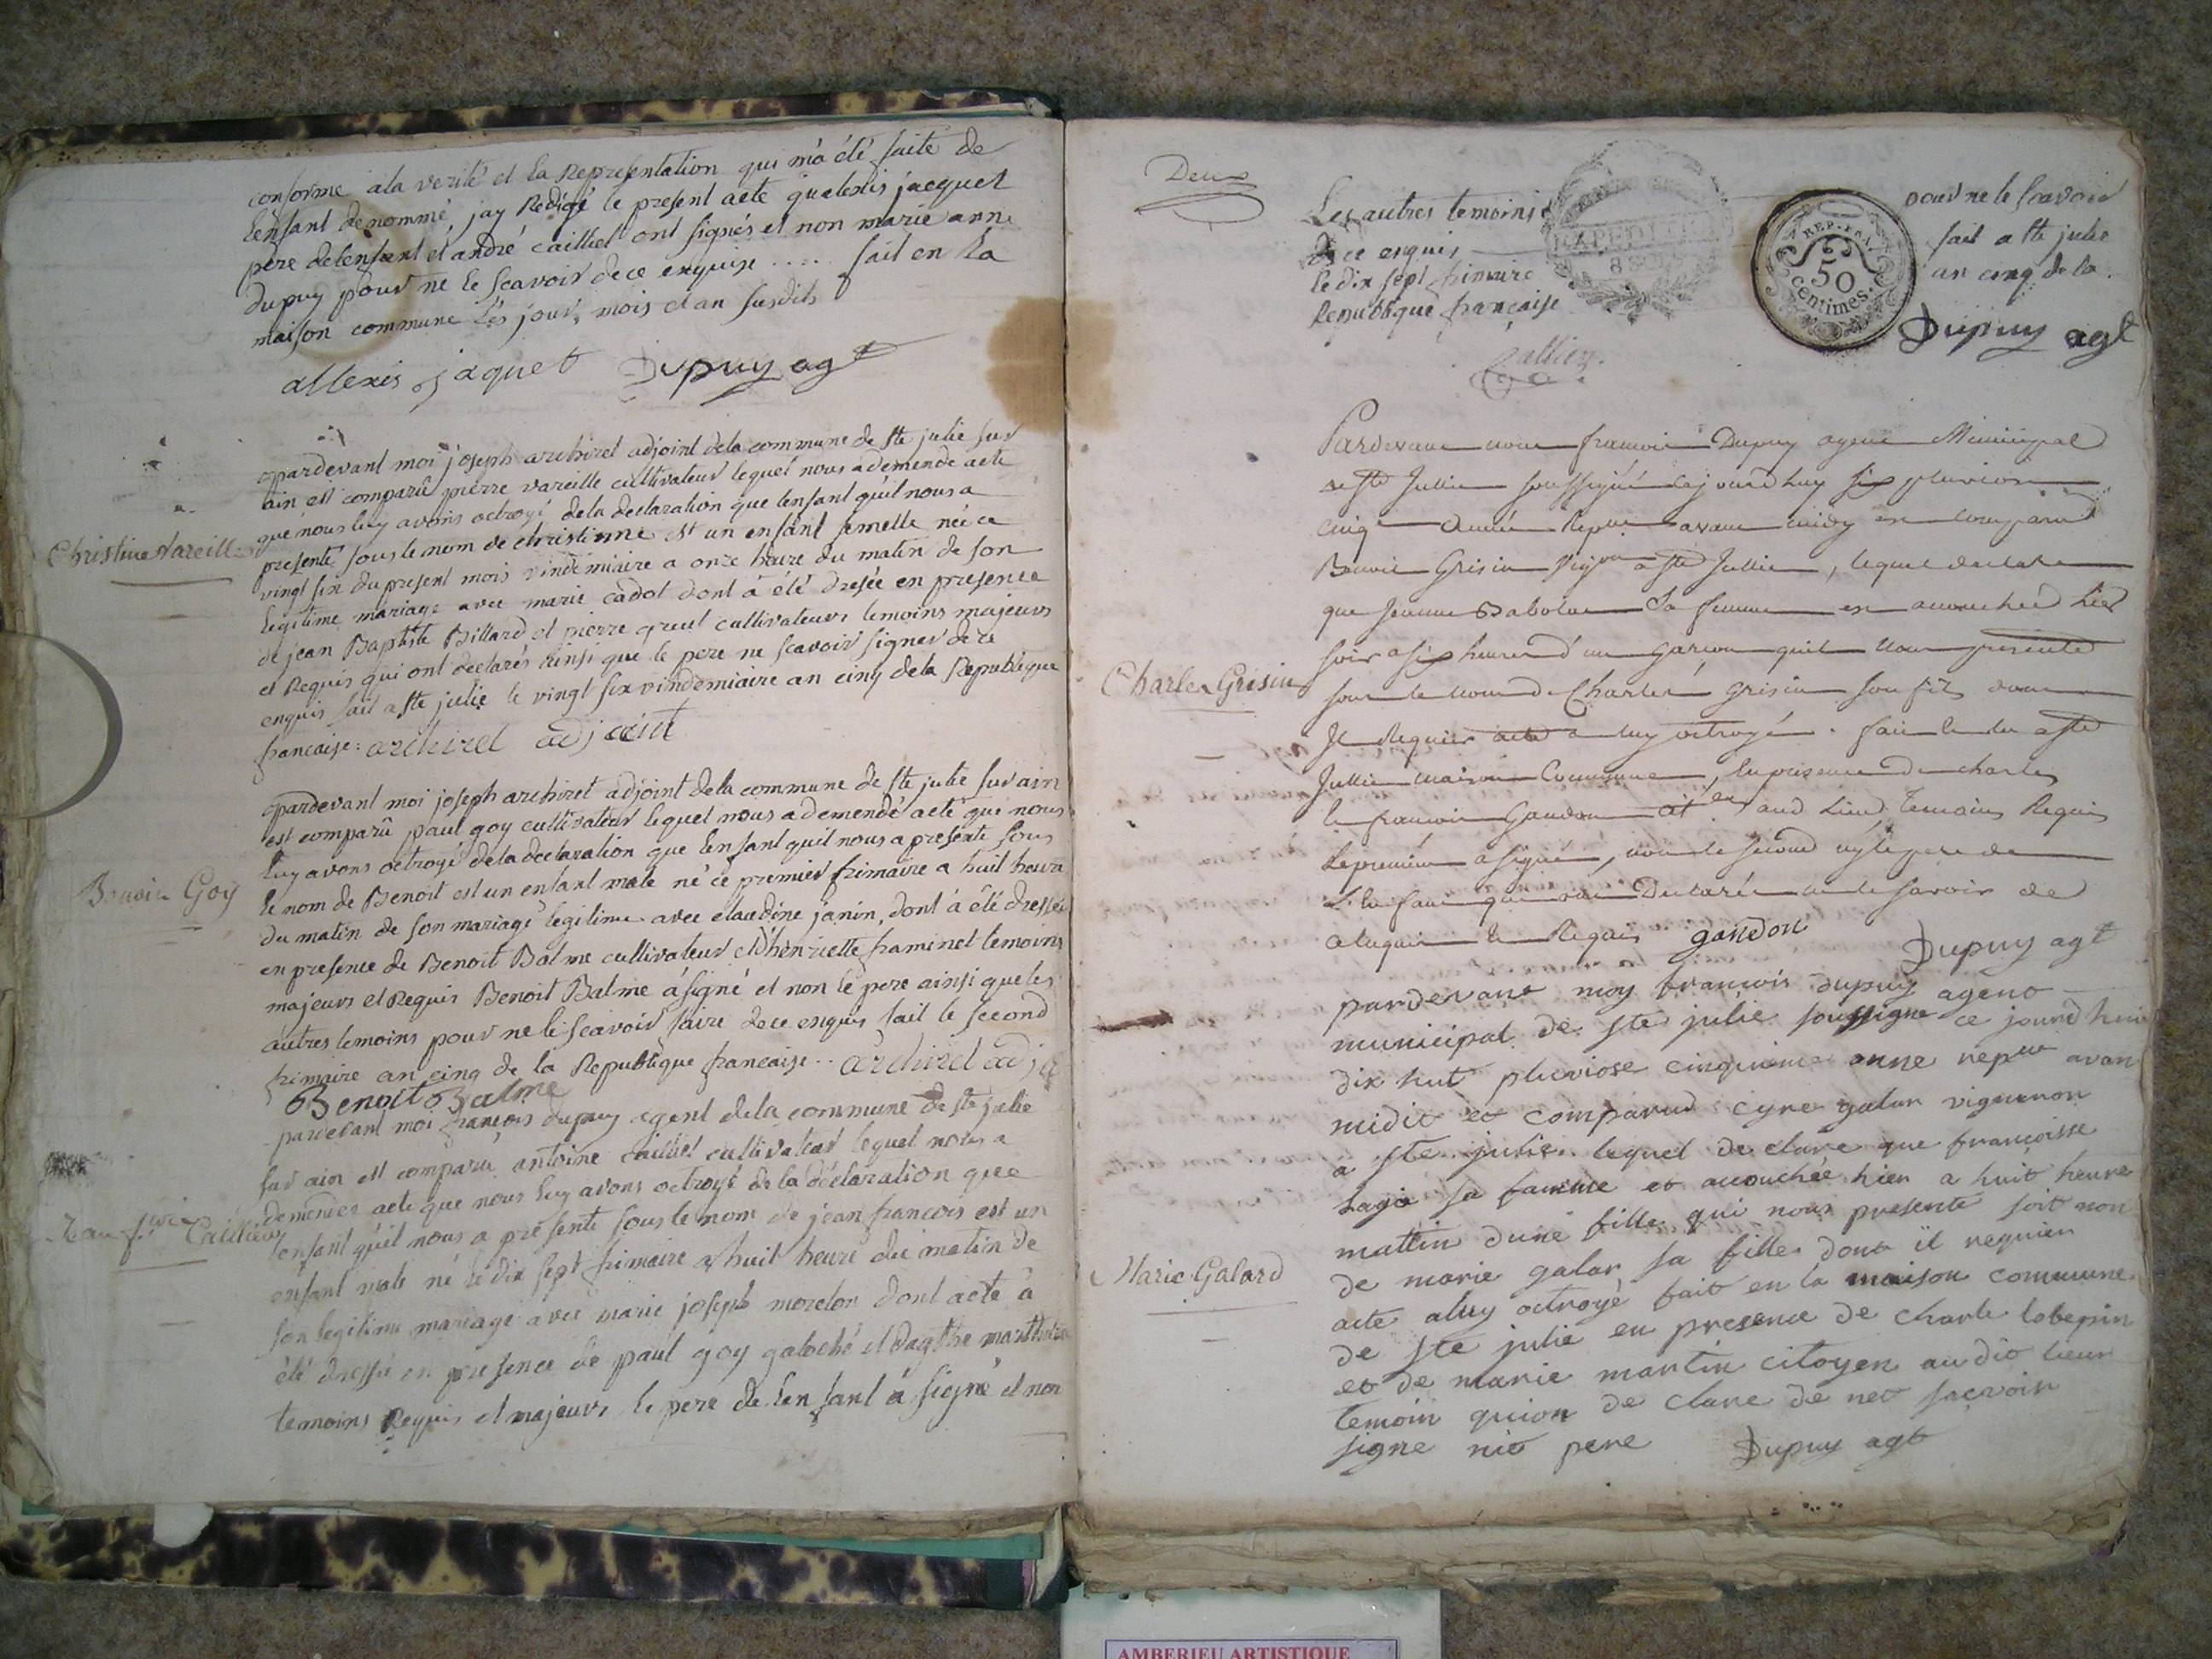 conforme a la verité et la Representation qui m'a été faite de
l'enfant denommé, jay Redigé le present acte qu'alexis jacquet
pere de lenfant et andré caillet ont signés et non marie anne
dupuy pour ne le scavoir de ce enquise .... fait en la
maison commune les jour, mois et an susdits
allexis jaquet Dupuy agt
pardevant moi joseph archiret adjoint de la commune de ste julie sur
ain est comparû pierre vareille cultivateur lequel nous a demende acte
que nous luy avons octroyé de la declaration que lenfant qu'il nous a
presenté sous le nom de christinne est un enfant femelle née ce
Christine Vareille
vingt six du present mois vindemiaire a onze heure du matin de son
legitime mariage avec marie cadot dont à été dresée en presence
de jean Baptiste Billard et pierre greut cultivateurs temoins majeurs
et Requis qui ont declarés ainsi que le pere ne scavoir signer de ce
enquis fait a ste julie le vingt six vindemiaire an cinq de la Republique
francaise: archiret adjoint
pardevant moi joseph archiret adjoint de la commune de ste julie sur ain
est comparû paul goy cultivateur lequel nous a demendé acte que nous
luy avons octroyé de la declaration que lenfant quil nous a presenté sous
le nom de Benoit est un enfant male né ce premier frimaire a huit heure
Benoit Goy
du matin de son mariage legitime avec claudine janin, dont à été dressée
en presence de Benoit Balme cultivateur et d'henriette framinet temoins
majeurs et Requis Benoit Balme á signé et non le pere ainsi que les
autres temoins pour ne le scavoir faire de ce enquis fait le second
frimaire an cinq de la Republique francaise .. archiret adj
Benoit Balme
pardevant moi françois dupuy agent de la commune de ste julie
sur ain est comparu antoine caillet cultivateur lequel nous a
demender acte que nous luy avons octroyé de la déclaration que
lenfant qu'il nous a presenté sous le nom de jean francois est un
Jean f.
enfant male né le dix sept frimaire a huit heure du matin de
son legitime mariage avec marie joseph morelon dont acte à
été dressé en presence de paul goy galoché et
temoins Requis et majeurs le pere de lenfant á signé et non
Deux
Les autres temoins pour ne le scavoir
de ce enquis fait a ste julie
le dix sept frimaire an cinq de la
Republique française
EXPEDITION
8 SOLS
REP. FRA.
50
centimes.
Dupuy agt
Pardevant nous francois Dupuy agent Municipal
de ste Jullie soussigné cejourdhuy six pluviose
cinq annee Repne avant midy est comparu
Benoit Grisin Vigon a ste Jullie, lequel declare
que Jeanne Babolat sa femme est accouchée hier
soir a six heures d'un garcon quil nous presente
Charles Grisin
sous le nom de Charles grisin son fils dont
Il Requier acte a luy octroyé. fait et lu a ste
Jullie maison Commune, En presence de charles
Temoins Requis
Lepremier a signé, non le second ny le pere de
savoir de
gandon Dupuy agt
pardevant moy francois dupuy agent
municipal de ste julie soussigne ce jourd hui
dix huit pluviose cinquieme anne repue avan
midit et comparud cyre galar vigneron
a ste julie lequel de clare que françoisse
sa famme et acouchée hier a huit heure
mattin dune fille qui nous presente soit non
Marie Galard
de marie galar sa fille dont il requier
acte aluy octroyé fait en la maison commune
de ste julie en presence de charle lobepin
et de marie martin citoyen au dit lieur
temoin quion de clare de net sacvoir
signe nit pere Dupuy agt
AMBERIEU ARTISTIQUE